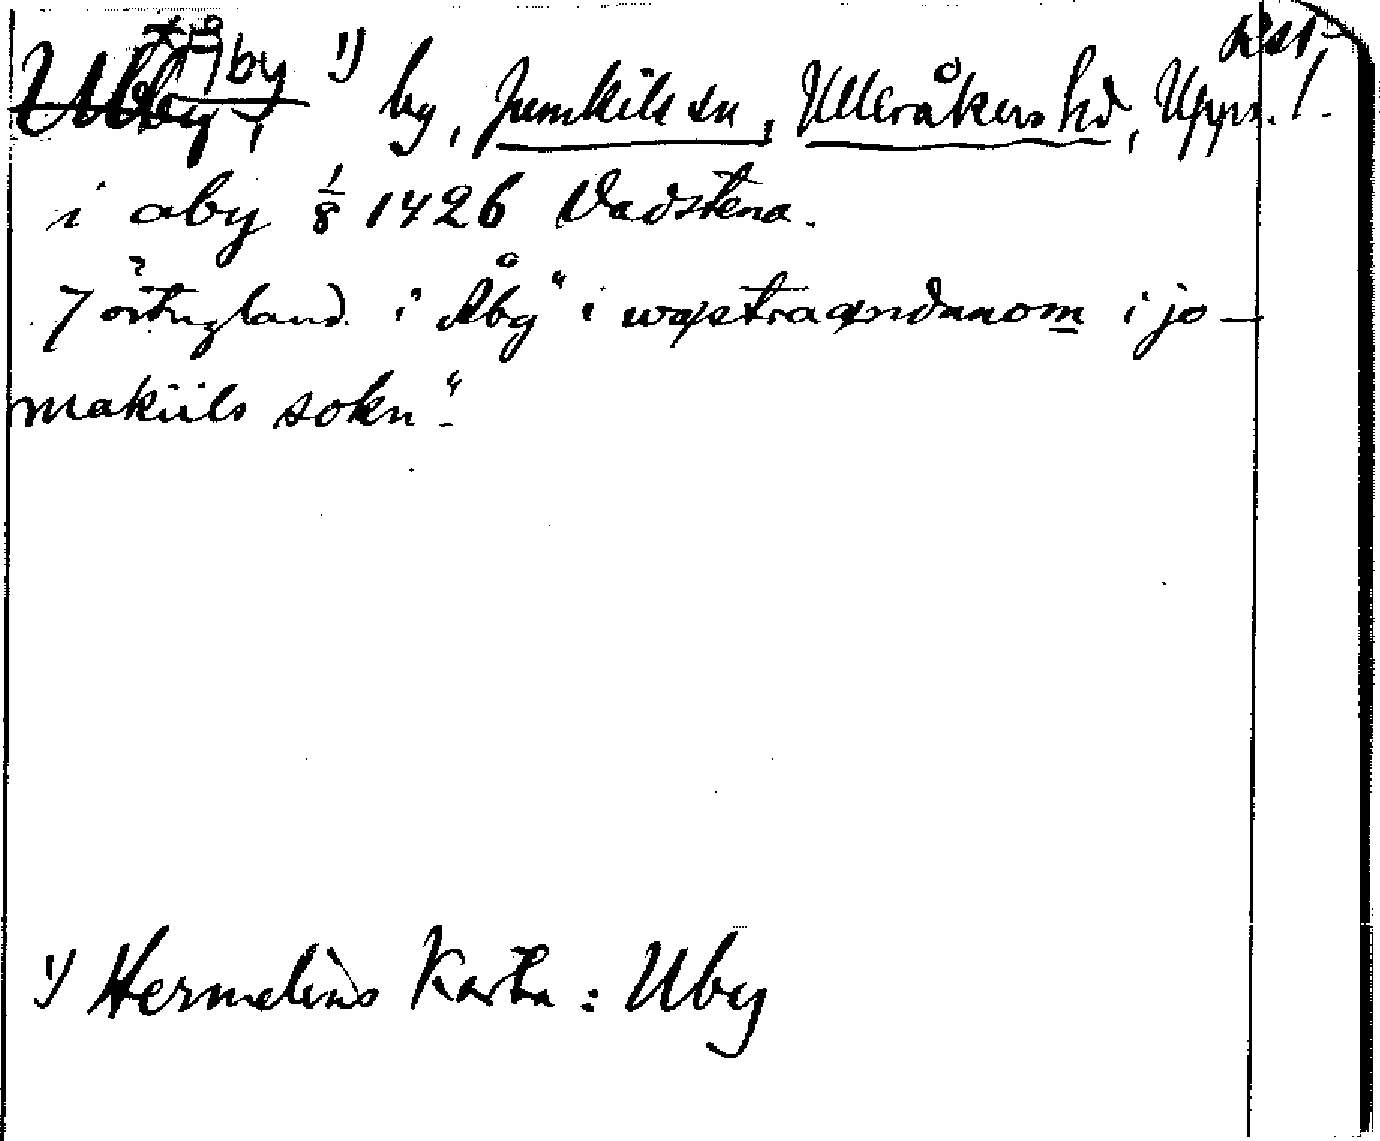 *Åby ¹⁾ by, Jumkils sn, Ulleråkers hd, Upps.
i aby 1/8 1426 Vadstena.
7 örtugland i Åby "i wæstraændanom i jo-
makiils sokn".
¹⁾ Hermelins Karta: Uby